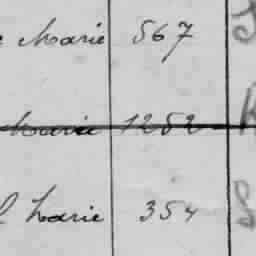 Marie 567
Marie 1252
Marie 354